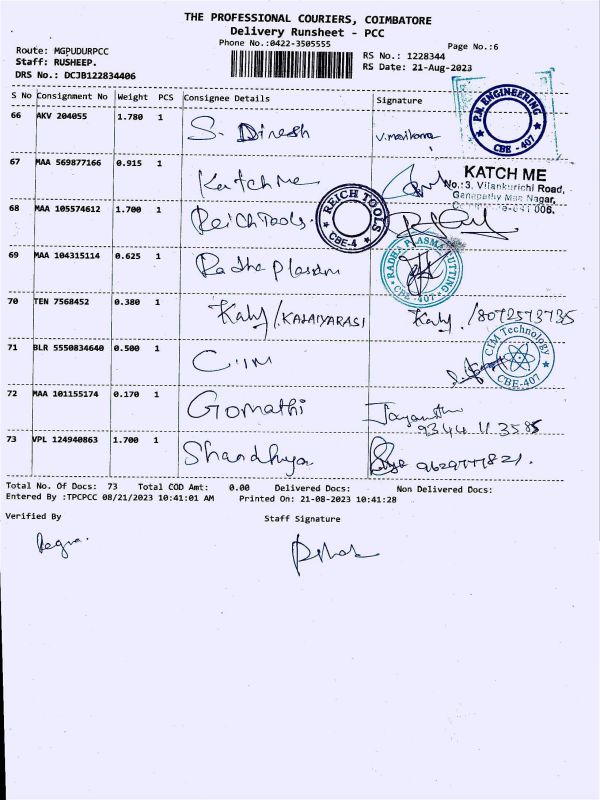 THE PROFESSIONAL COURIERS, COIMBATORE
Delivery Runsheet - PCC
Phone No.:0422-3505555
Page No.:6
Route: MGPUDURPCC
Staff: RUSHEEP.
DRS No.: DCJB122834406
RS No.: 1228344
RS Date: 21-Aug-2023
S No Consignment No Weight PCS Consignee Details Signature
66 AKV 204055 1.780 1 S. Dinesh
P.N. ENGINEERING
CBE - 407
67 MAA 569877166 0.915 1 Katch Me
KATCH ME
No.: 3, Vilankurichi Road,
Ganapathy Maa Nagar,
68 MAA 105574612 1.700 1 Reich Tools.
REICH TOOLS
CBE-4
69 MAA 104315114 0.625 1 Radha Plasam
RADHA PLASMA CUTTING
CBE - 407
70 TEN 7568452 0.380 1 Kaly /KALAIYARASI Kaly. /8072573735
71 BLR 5550834640 0.500 1 CIIM
CIM Technology
CBE-407
72 MAA 101155174 0.170 1 Gomathi Jayanthi
9344 11 3585
73 VPL 124940863 1.700 1 Shandhya 9629777821.
Total No. Of Docs: 73 Total COD Amt: 0.00 Delivered Docs: Non Delivered Docs:
Entered By :TPCPCC 08/21/2023 10:41:01 AM Printed On: 21-08-2023 10:41:28
Verified By Staff Signature